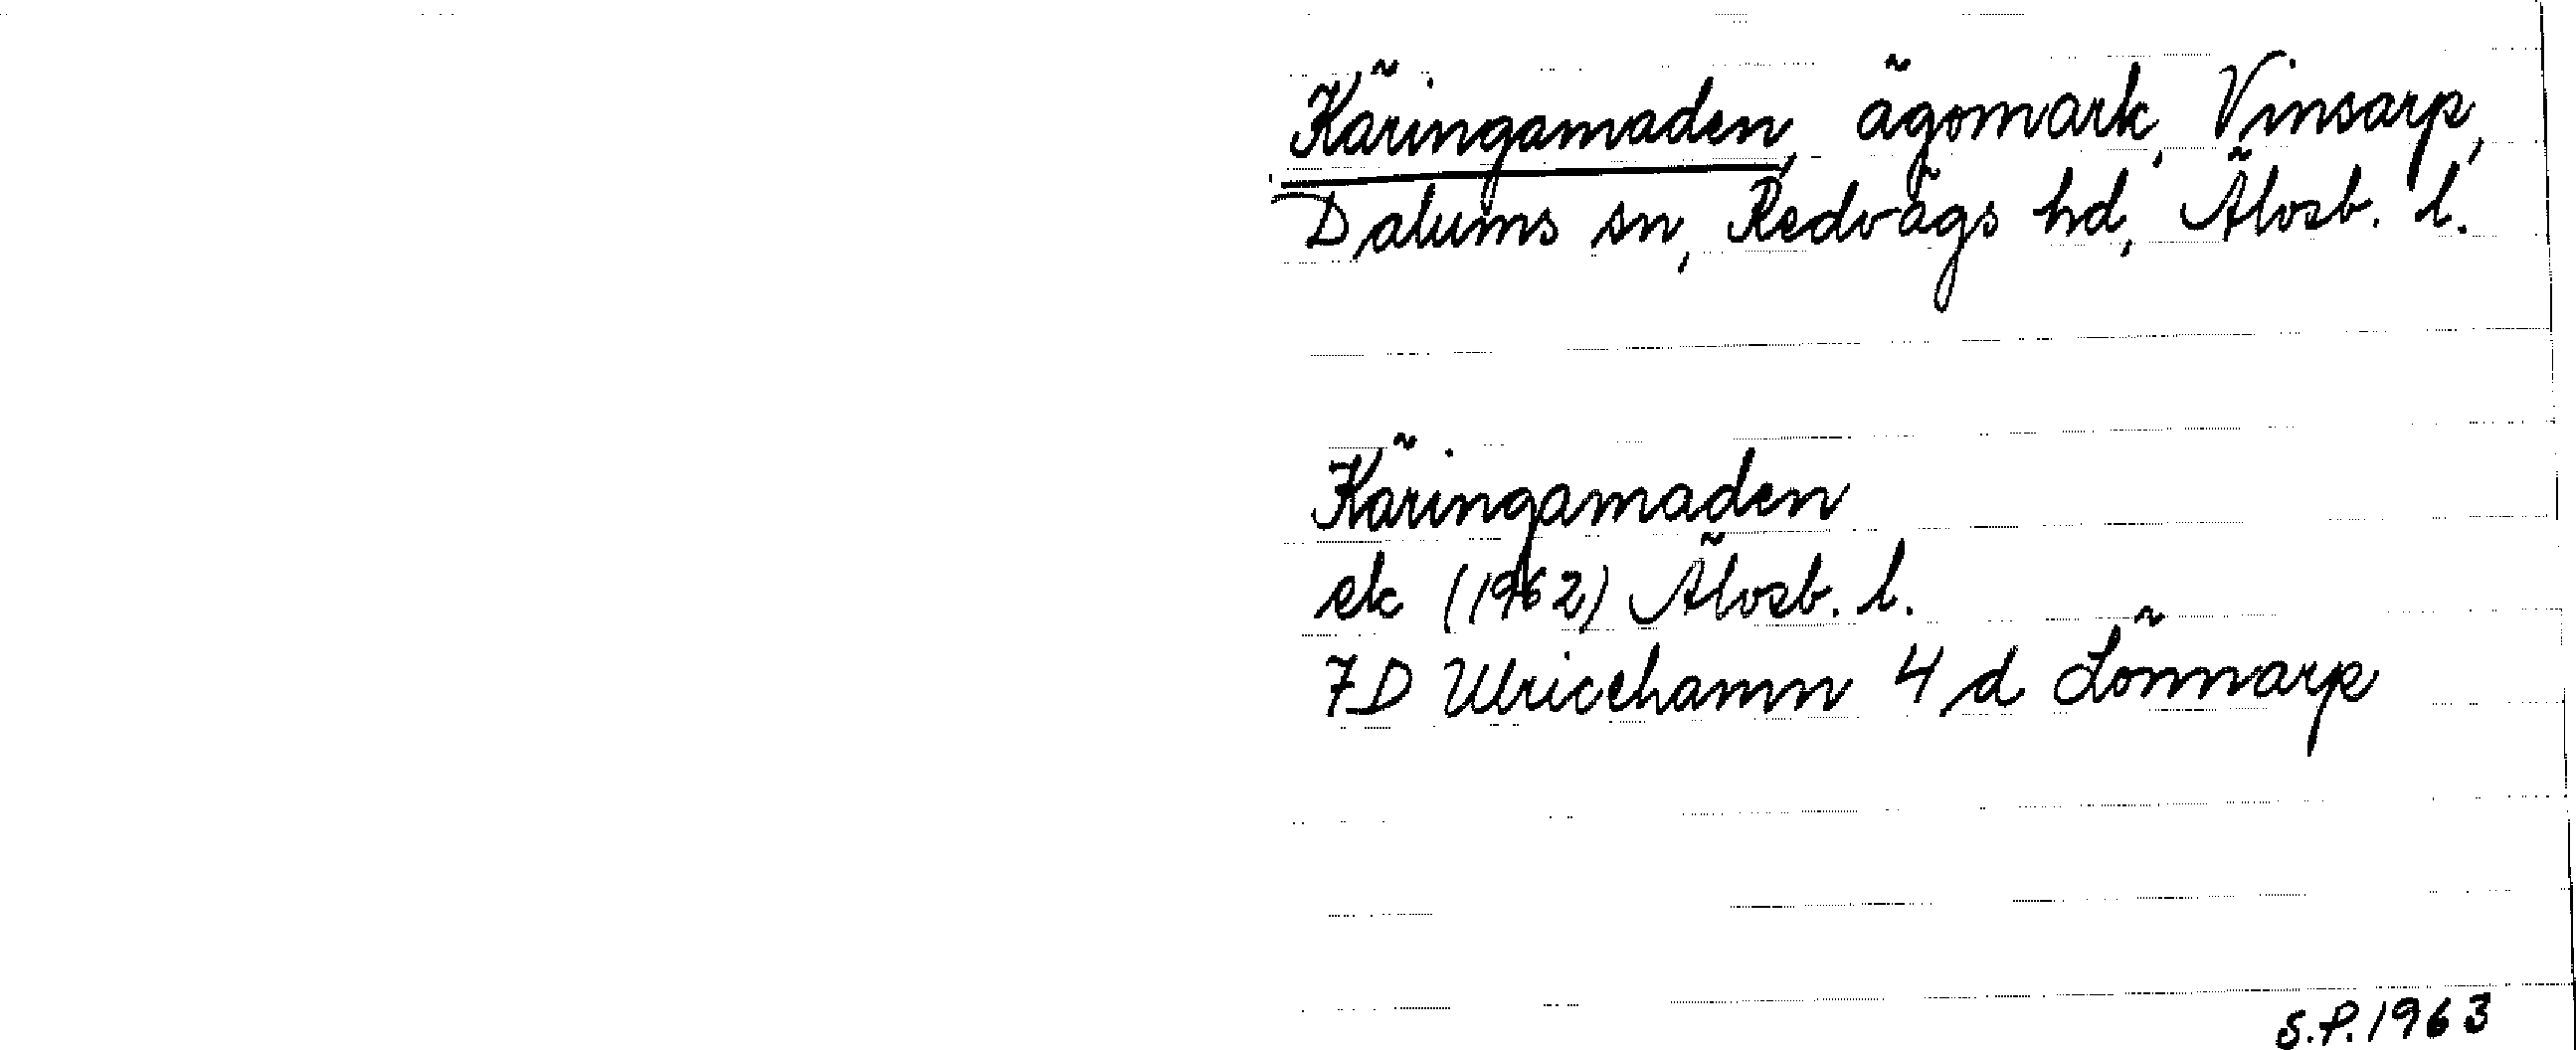 Käringamaden, ägomark, Vinsarp,
Dalums sn, Redvägs hd, Älvsb. l.
Käringamaden
ek (1962) Älvsb. l.
7D Ulricehamn 4 d Lönnarp
S.P. 1963